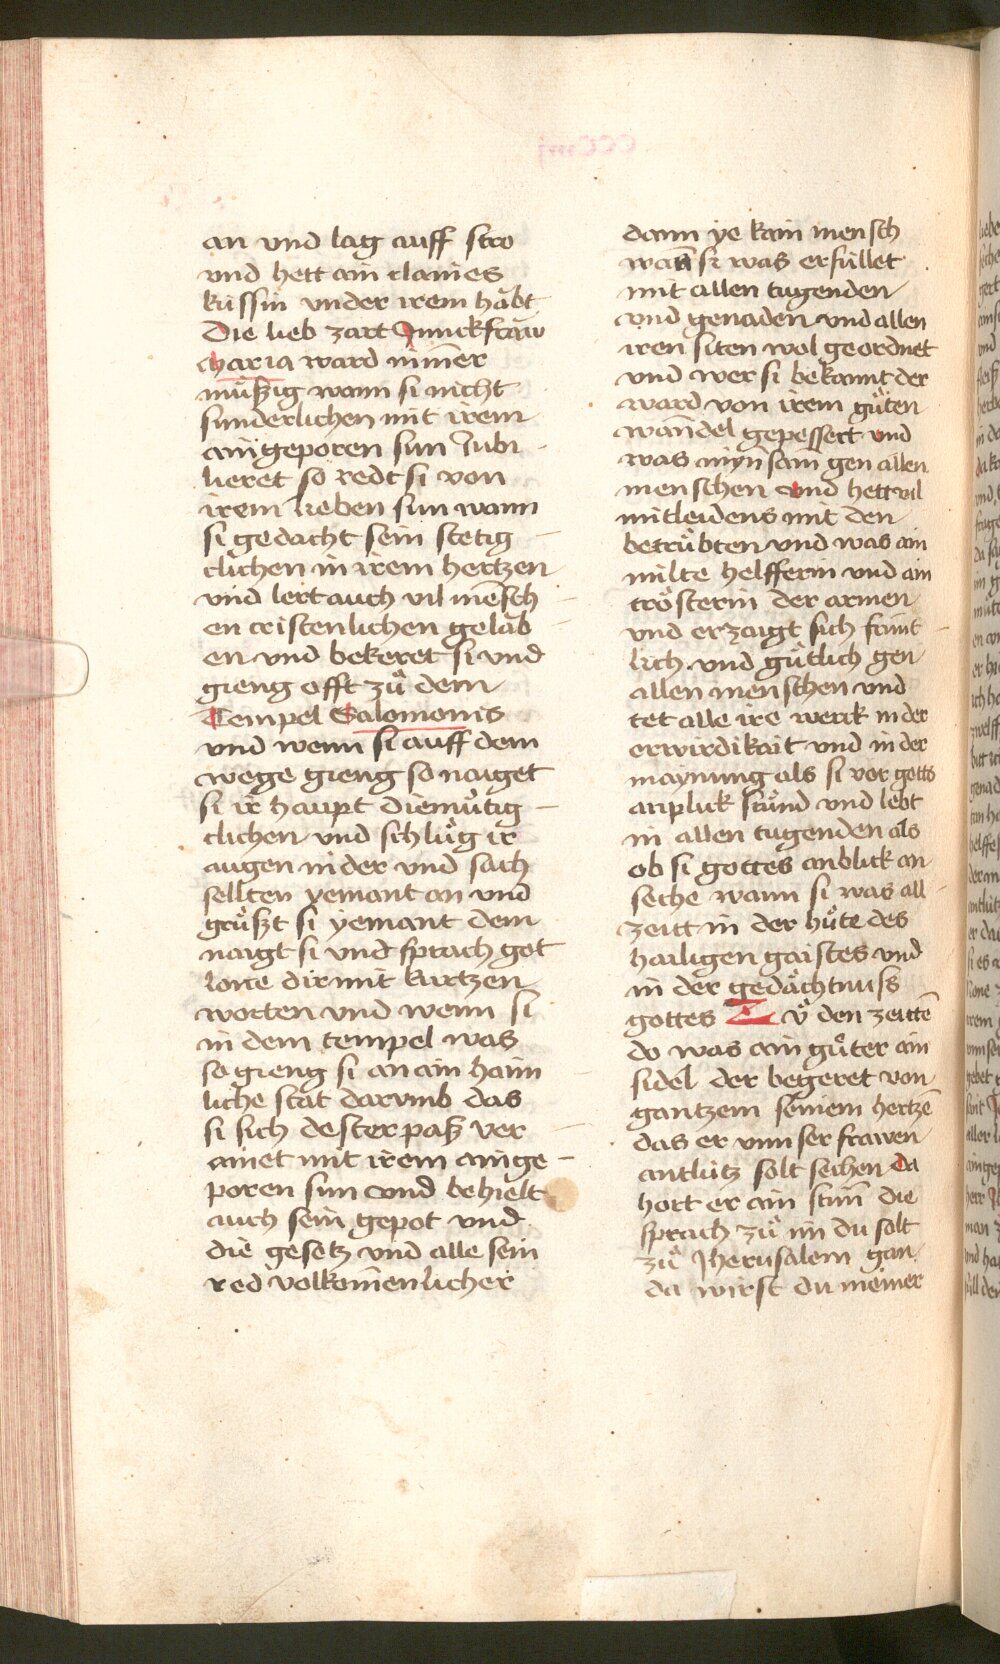 an vnd lag auff stro
vnd hett ain claines
küssin vnder irem habt
Die lieb zart Junckfraw
Maria ward nim̄er
müßig wann si nicht
sunderlichen mit irem
aingeporen sun Jubi
lieret so redt si von
irem lieben sun wann
si gedacht sein stetig
clichen in irem hertzen
vnd lert auch vil mensch
en cristenlichen gelab
en vnd bekeret si vnd
gieng offt zů dem
Tempel Salomonis
vnd wenn si auff dem
wege gieng so naiget
si ir haupt diemůtig
clichen vnd schlůg ir
augen nider vnd sach
sellten yemant an vnd
grůßt si yemant dem
naigt si vnd sprach got
lone dir mit kurtzen
worten vnd wenn si
in dem tempel was
so gieng si an ain haim
liche stat darvmb das
si sich dester paß ver
ainet mit irem ainge
poren sun vnd behielt
auch sein gepot vnd
die gesetz vnd alle sein
red volkom̄enlicher
dann ye kain mensch
wann si was erfüllet
mit allen tugenden
vnd genaden vnd allen
iren siten wol geordnet
vnd wer si bekannt der
ward von irem gůten
wandel gepessert vnd
was mynsam gen allen
menschen vnd hett vil
mitleidens mit den
betrübten vnd was ain
milte helfferin vnd ain
trösterin der armen
vnd erzaigt sich frünt
lich vnd gůtlich gen
allen menschen vnd
tet alle ire werck in der
erwirdikait vnd in der
maynung als si vor gotts
anpluk stůnd vnd lebt
in allen tugenden als
ob si gottes anblick an
seche wann si was all
zeitt in der hůte des
hailigen gaistes vnd
in der gedächtnuss
gottes Zů den zeittē
do was ain gůter ain
sidel der begeret von
gantzem seinem hertzē
das er vnnser frawen
antlütz solt sechen da
hort er ain stim̄ die
sprach zů im du solt
zů Jherusalem gan
da wirst du meiner